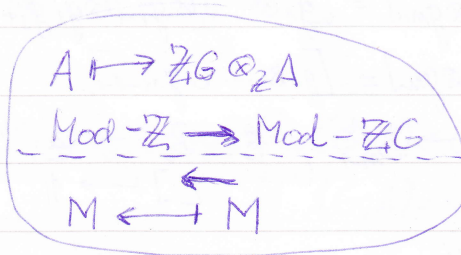 A ↦ ℤG ⊗_ℤ A
Mod-ℤ → Mod-ℤG
←
M ↤ M